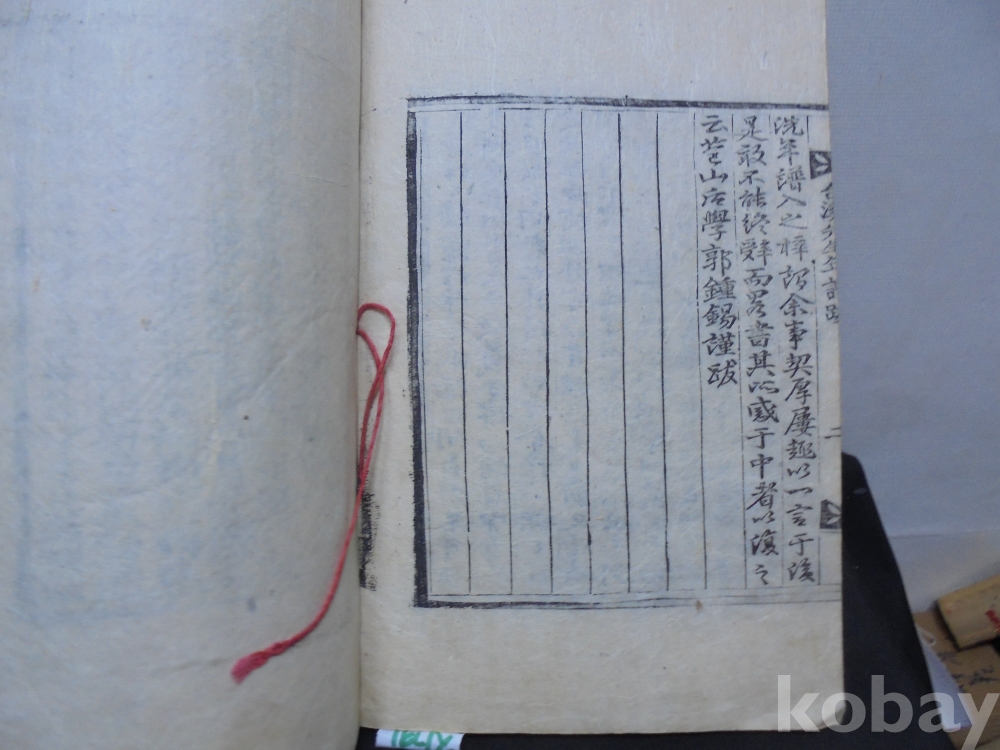 洗年譜入之梓諉余事契厚屢趣以一言于後
是敢不能終辭而畧書其所感于中者以復之
云苞山后學郭鍾錫謹跋
二
kobay